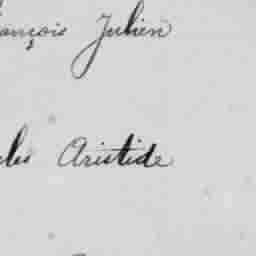 ançois Julien
les Aristide